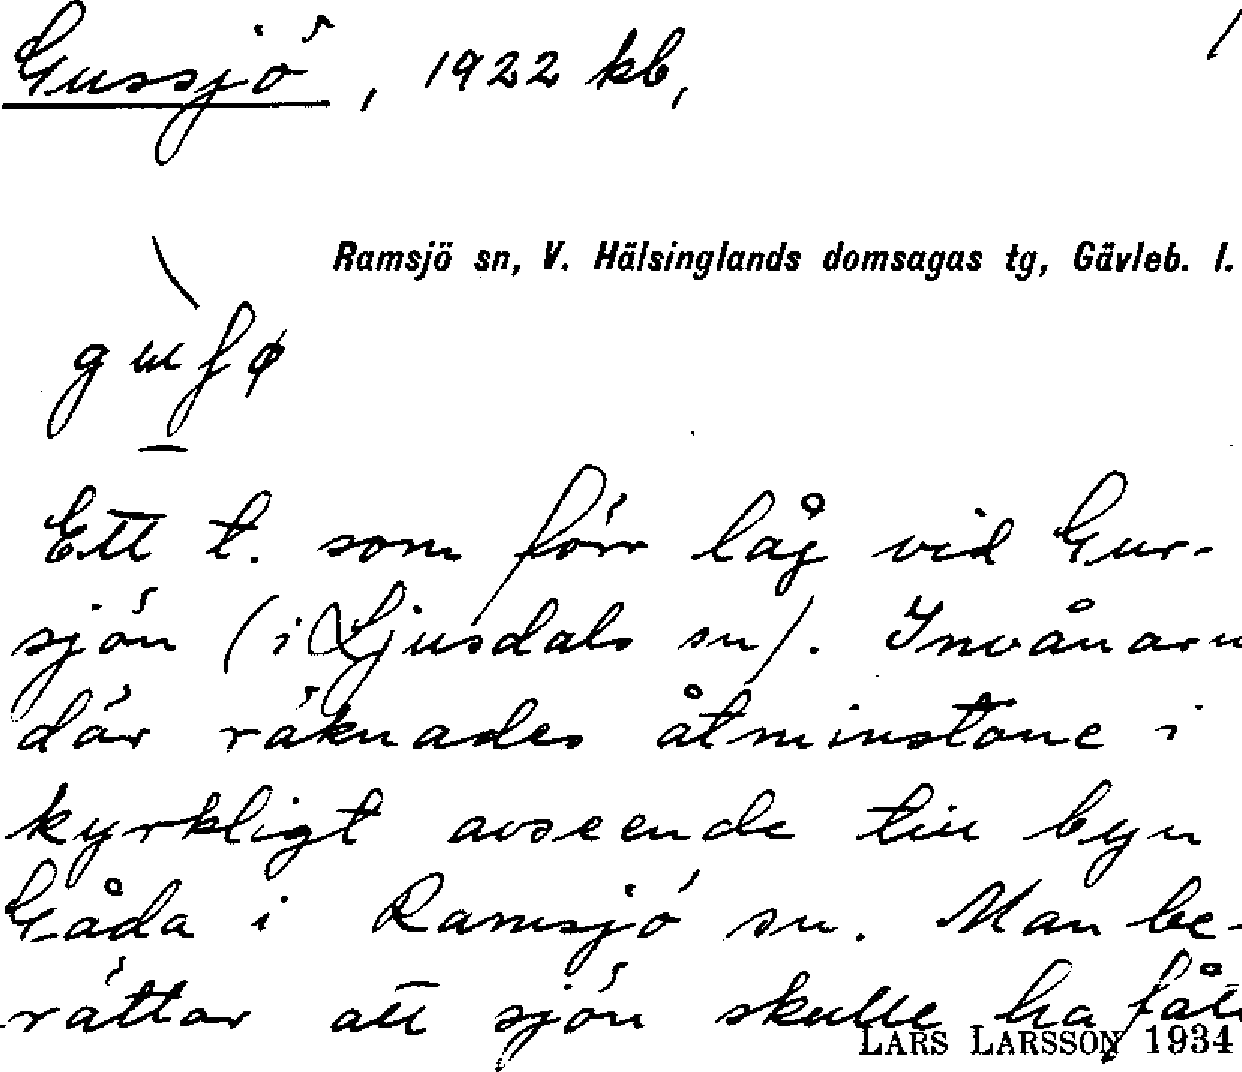 Gussjö, 1922 kb, 1
Ramsjö sn, V. Hälsinglands domsagas tg, Gävleb. l.
Ett t. som förr låg vid Gus-
sjön (i Ljusdals sn). Invånarn
där räknades åtminstone i
kyrkligt avseende till byn
Gåda i Ramsjö sn. Man be-
rättar att sjön skulle ha fått
LARS LARSSON 1934